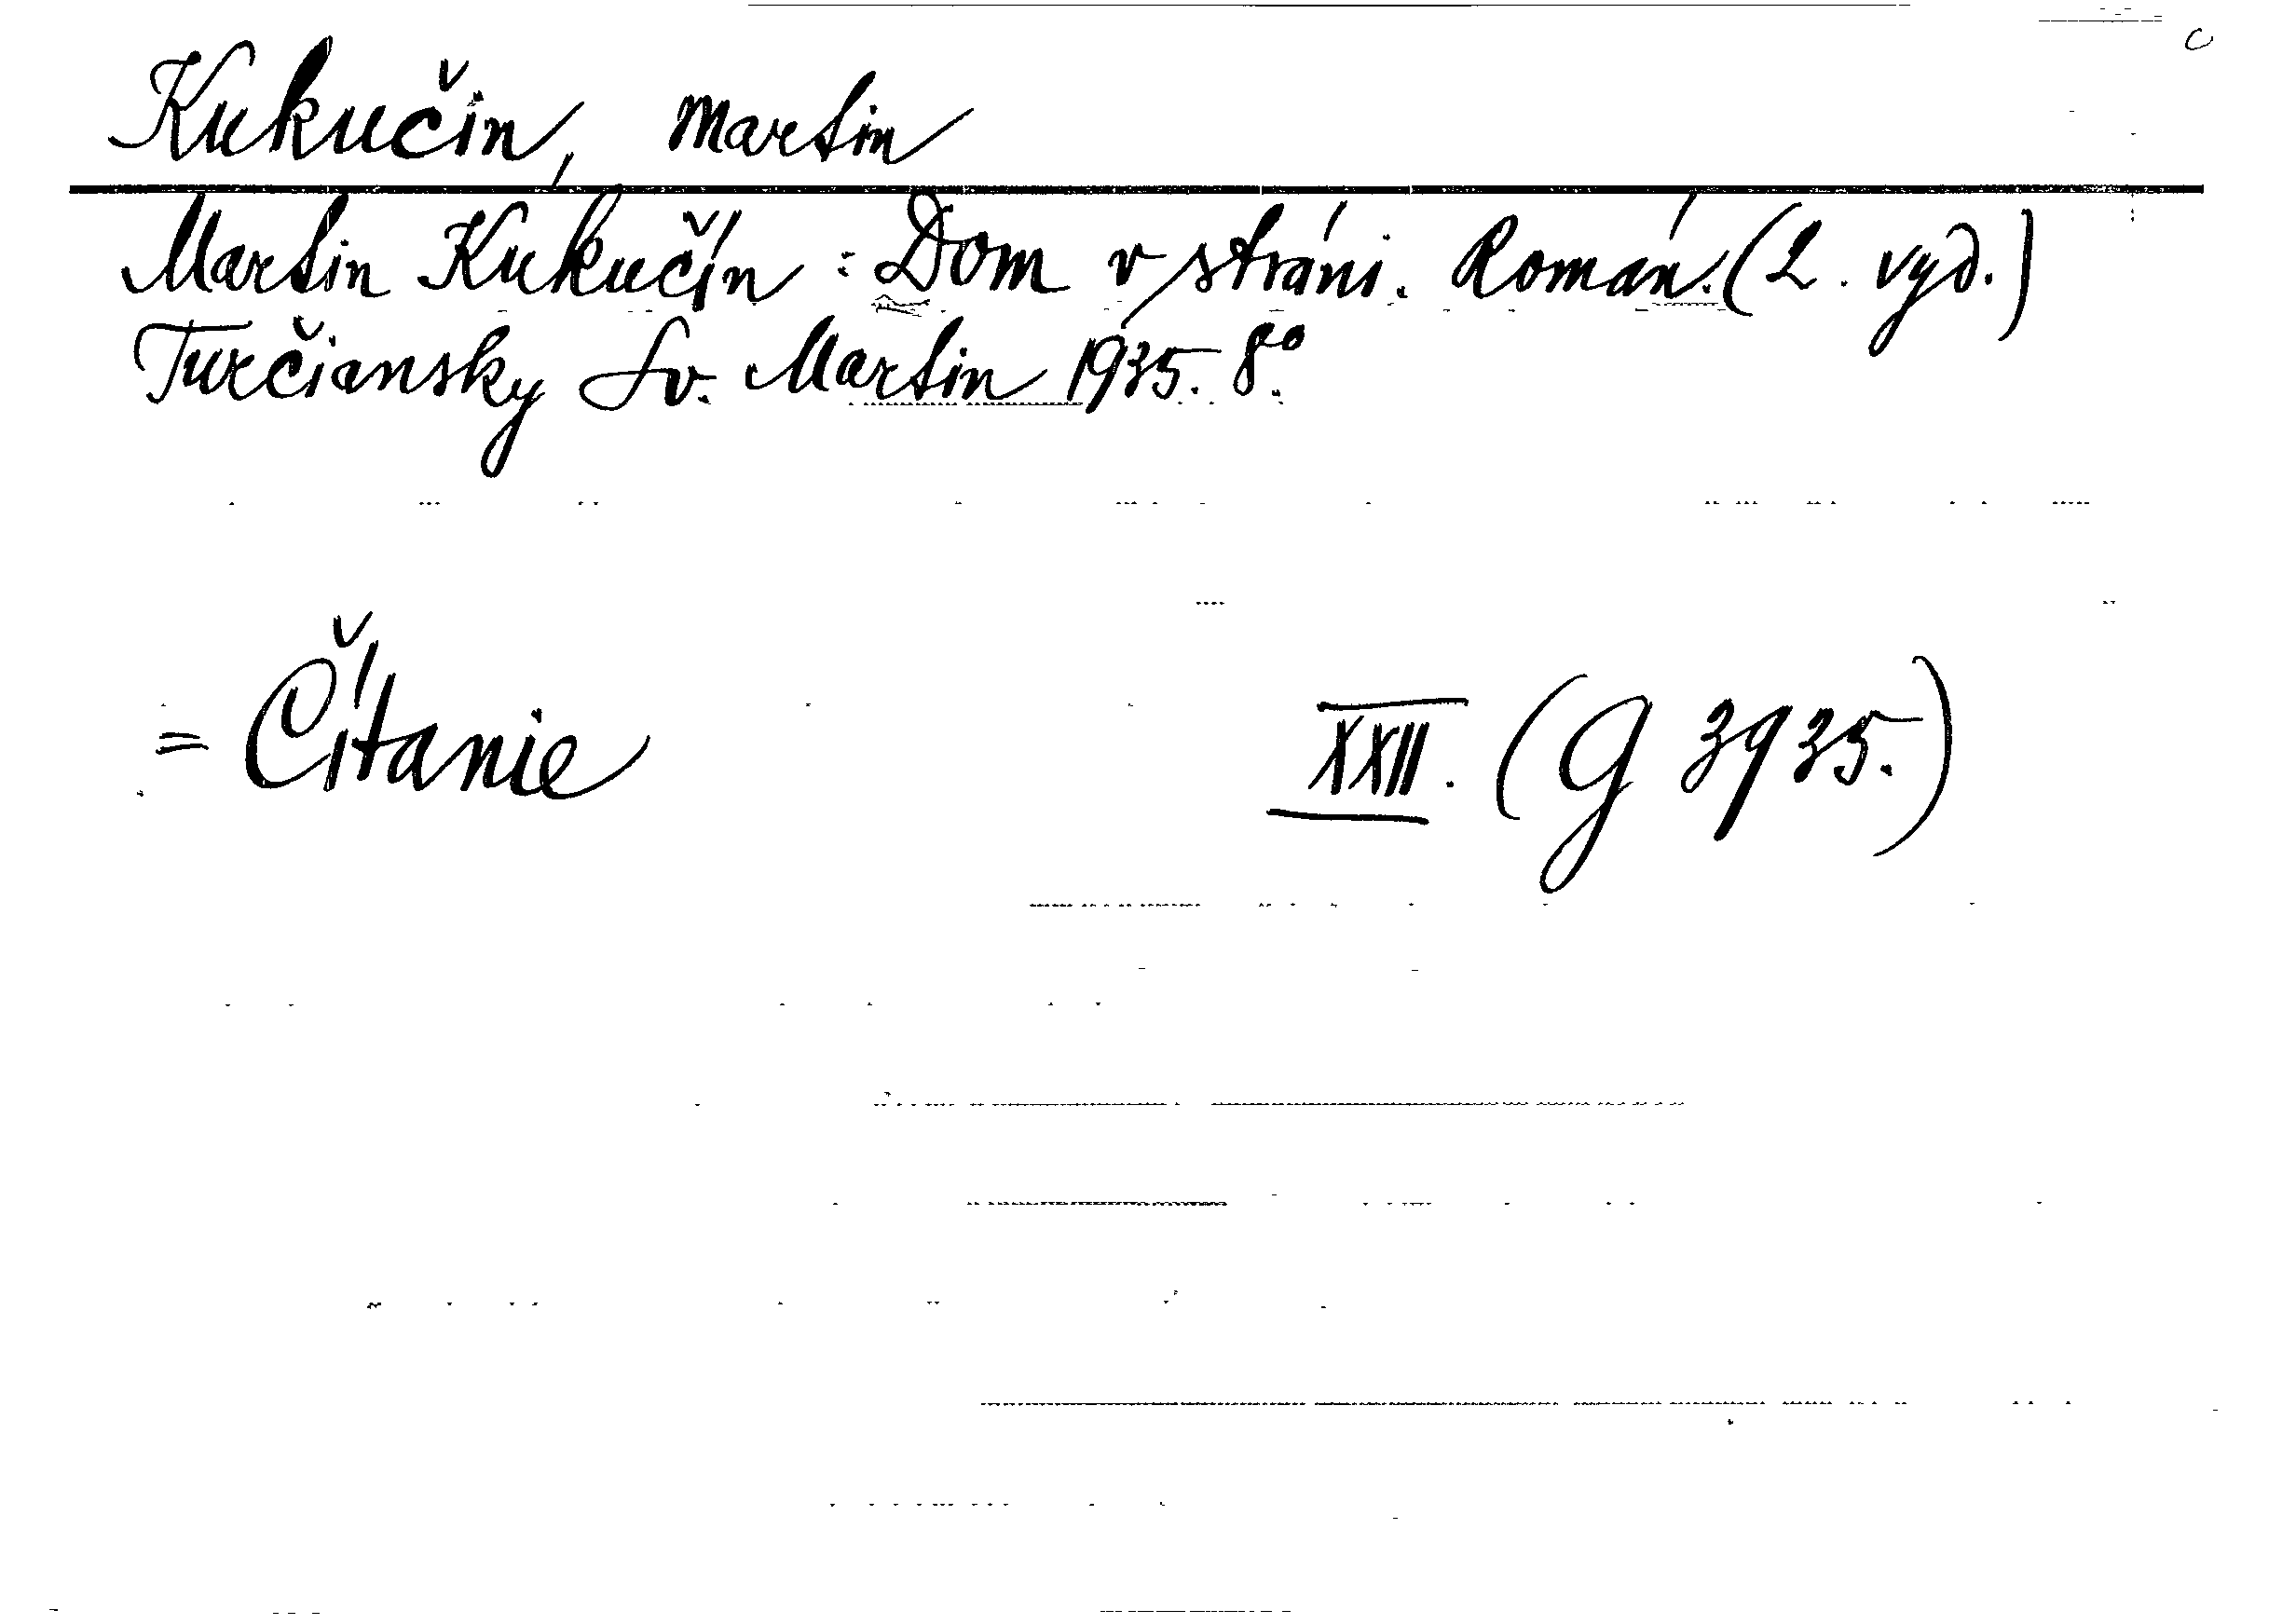 Kukučin, Martin
Martin Kukučín: Dom v stráni. Román. (2. vyd.)
Turčiansky Sv. Martin 1935. 8°.
= Čítanie XXII. (G 3935.)